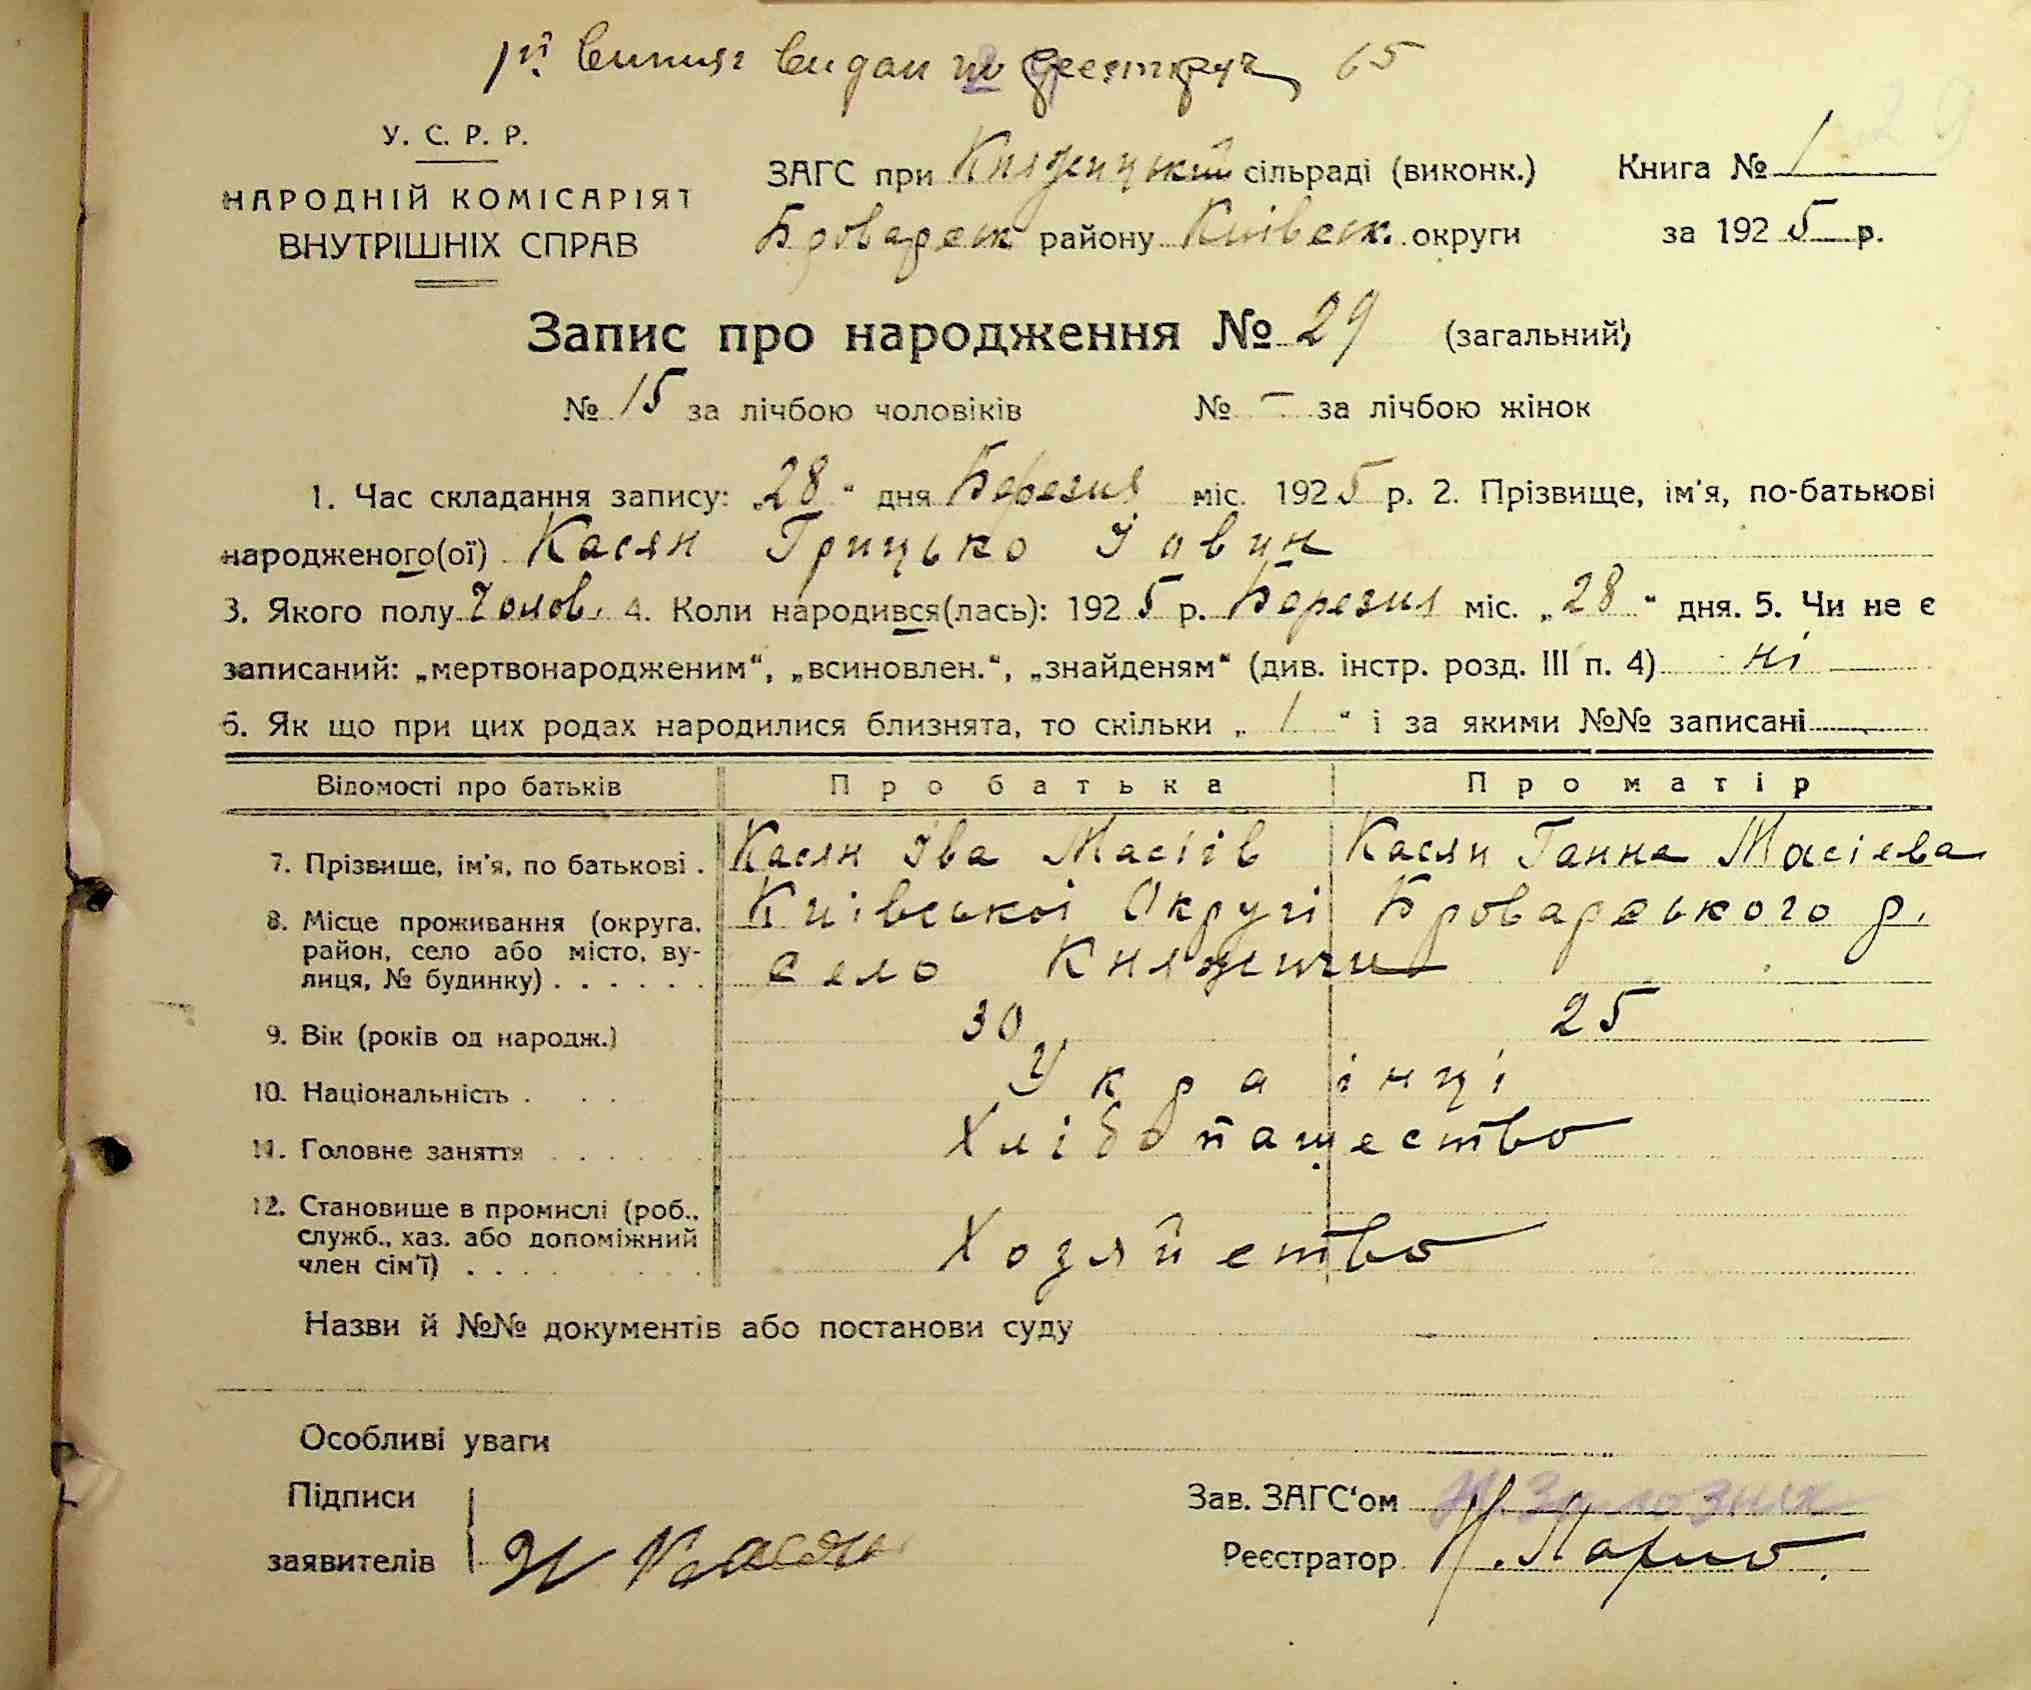 Випис видан по реестру 65
У. С. Р. Р.
НАРОДНІЙ КОМІСАРІЯТ
ВНУТРІШНІХ СПРАВ
ЗАГС при Княжицький сільраді (виконк.)
Броварськ району Київськ. округи
Книга № 1
за 1925 р.
29
Запис про народження № 29 (загальний)
№ 15 за лічбою чоловіків № – за лічбою жінок
1. Час складання запису: „28“ дня Березня міс. 1925 р. 2. Прізвище, ім'я, по-батькові
народженого(ої) Касян Грицько Івавун
3. Якого полу Чолов. 4. Коли народився(лась): 1925 р. Березня міс. „28“ дня. 5. Чи не є
записаний: „мертвонародженим“, „всиновлен.“, „знайденям“ (див. інстр. розд. III п. 4) ні
6. Як що при цих родах народилися близнята, то скільки „1“ і за якими №№ записані
Відомості про батьків Про батька Про матір
7. Прізвище, ім'я, по батькові . Касян Іва Масіів Касян Ганна Масіева
8. Місце проживання (округа, район, село або місто, вулиця, № будинку) . . . . . . Київської Округі Броварського р.
село Княжичи
9. Вік (років од народж.) 30 25
10. Національність . . . Українці
11. Головне заняття . . . . . Хлібопашество
12. Становище в промислі (роб., служб., хаз. або допоміжний член сім'ї) . . . . Хозяйство
Назви й №№ документів або постанови суду
Особливі уваги
Підписи
заявителів И Касян
Зав. ЗАГС'ом
Реєстратор